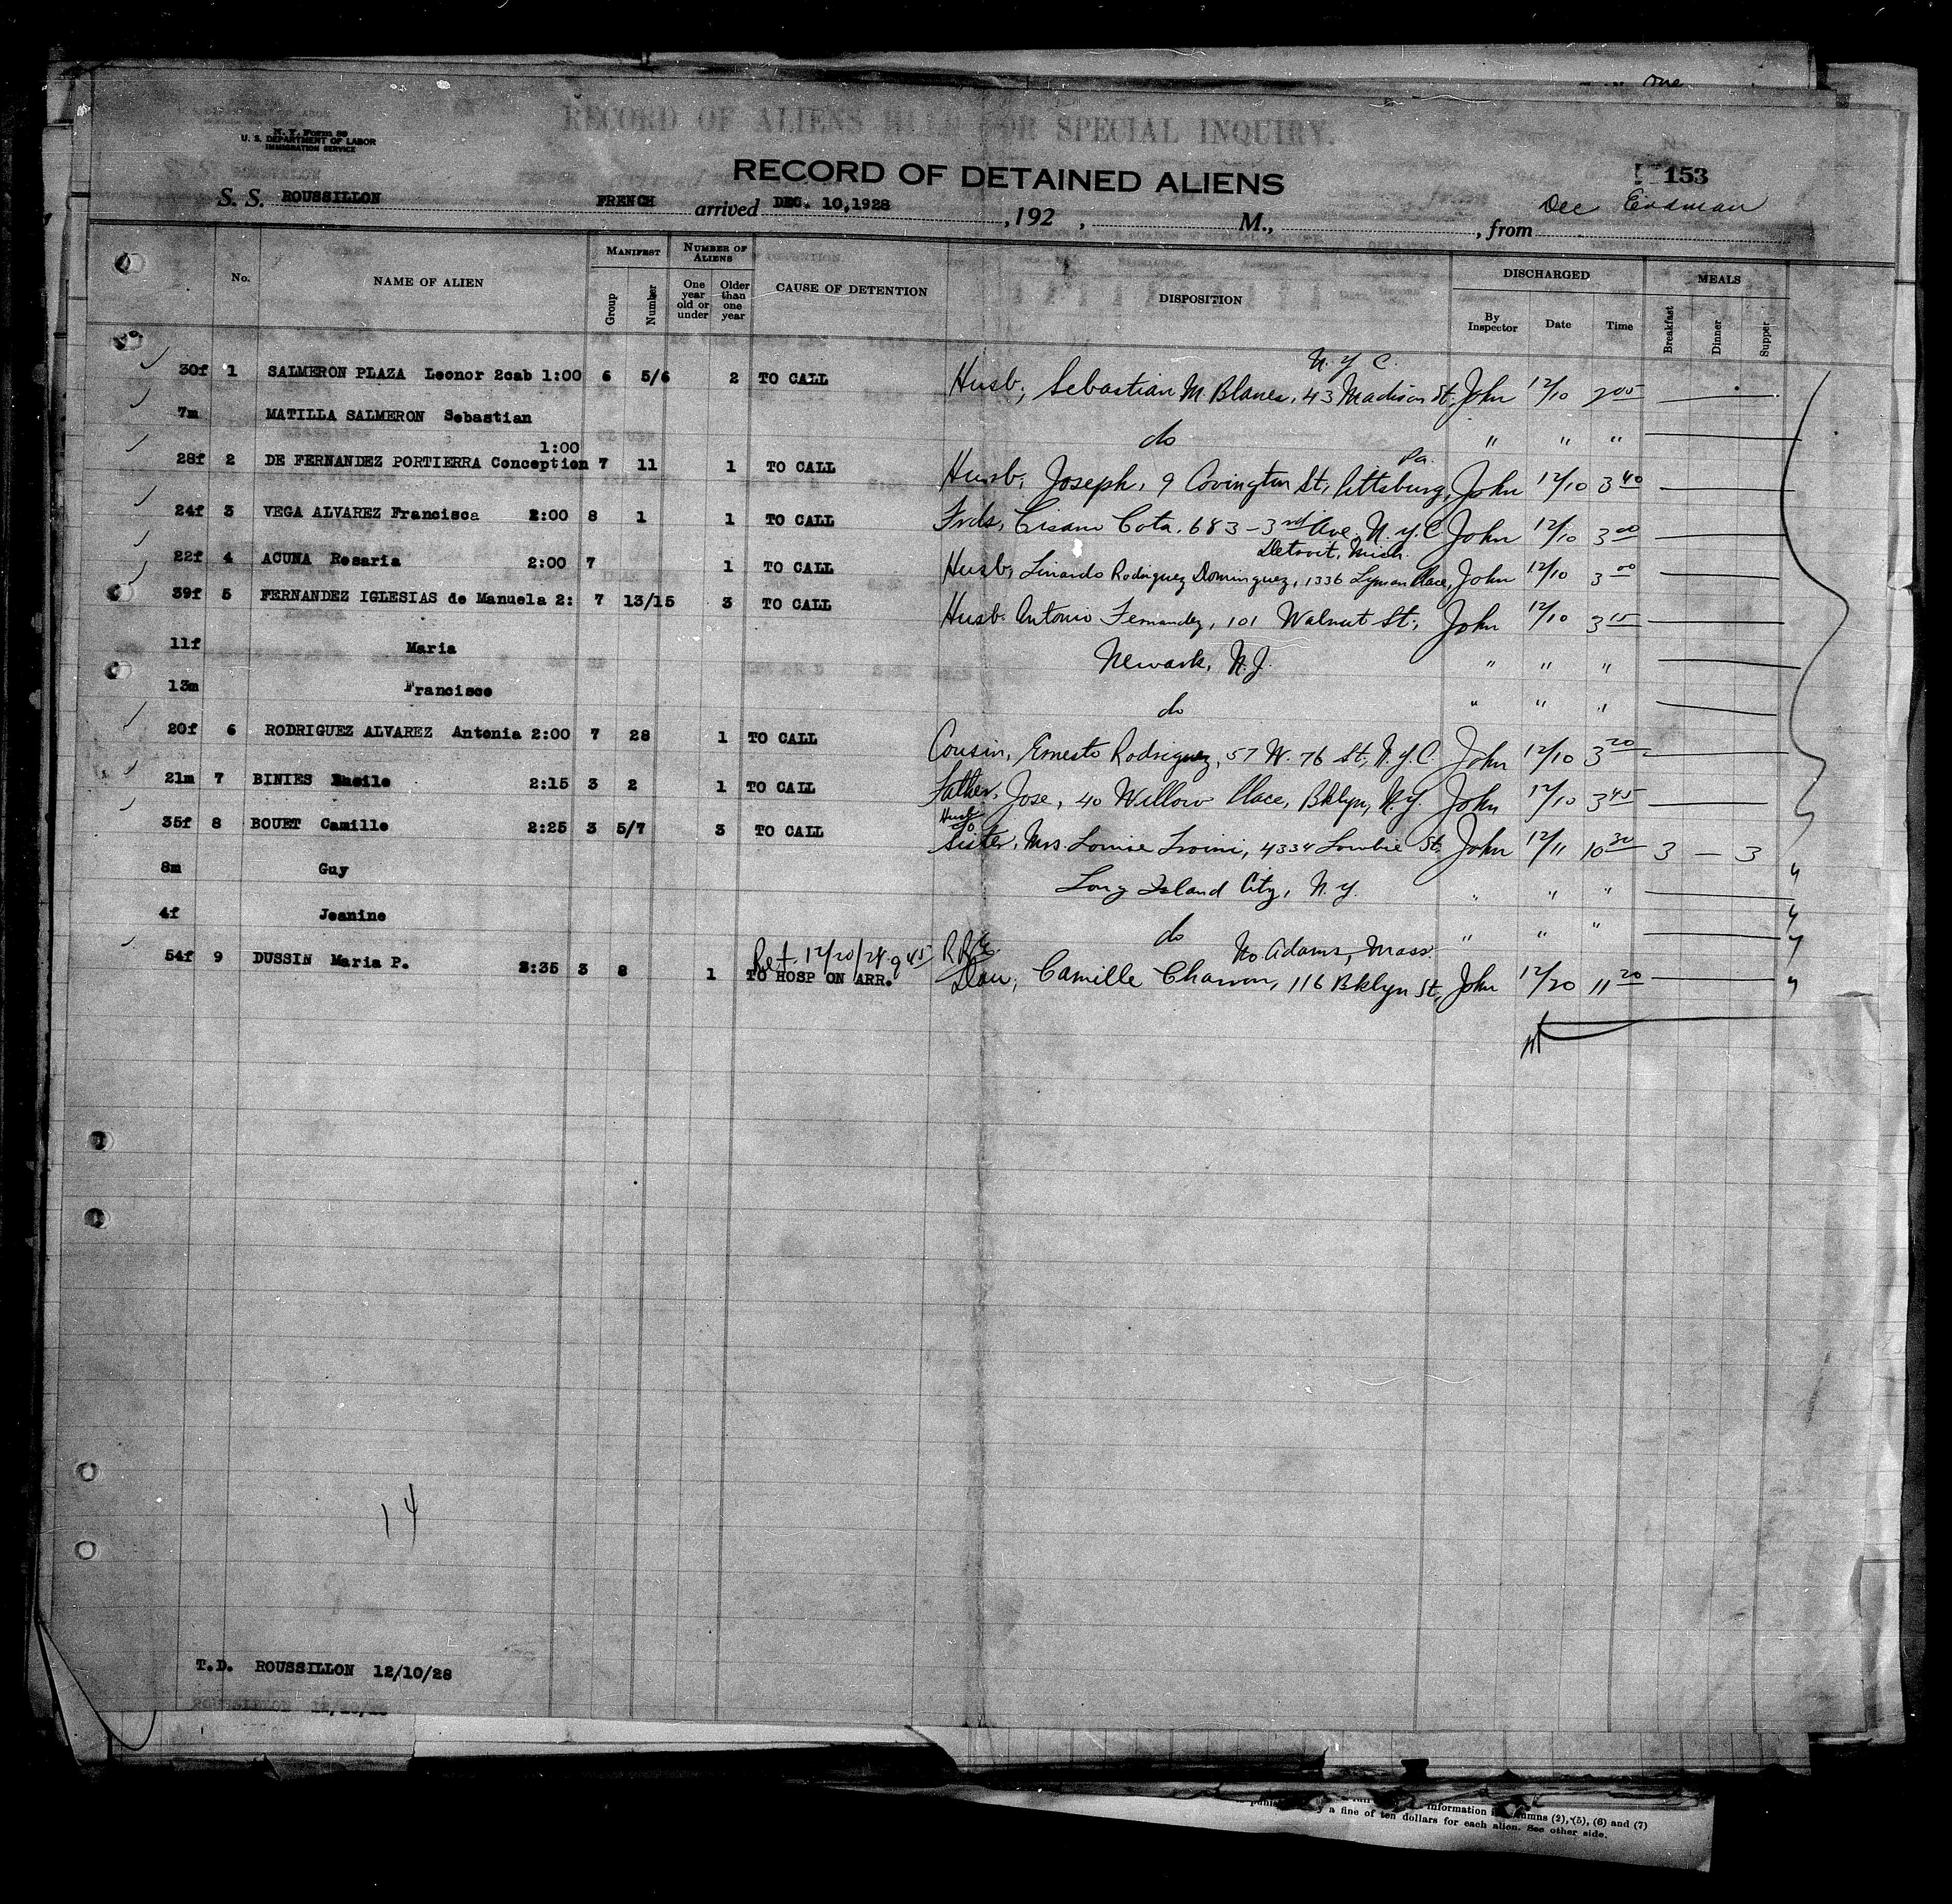 one
RECORD OF ALIENS HELD FOR SPECIAL INQUIRY.
N. Y. Form 89
U. S. DEPARTMENT OF LABOR
IMMIGRATION SERVICE
RECORD OF DETAINED ALIENS
153
S. S. ROUSSILLON FRENCH arrived DEC. 10,1928 , 192 , M., , from Dec Erdman
No. NAME OF ALIEN MANIFEST Group Number NUMBER OF ALIENS One year old or under Older than one year CAUSE OF DETENTION DISPOSITION DISCHARGED By Inspector Date Time MEALS Breakfast Dinner Supper
N.Y.C.
30f 1 SALMERON PLAZA Leonor 2cab 1:00 6 5/6 2 TO CALL Husb, Sebastian M. Blanes, 43 Madison St, John 12/10 2 05
7m MATILLA SALMERON Sebastian do " " "
1:00 Pa.
28f 2 DE FERNANDEZ PORTIERRA Conception 7 11 1 TO CALL Husb, Joseph, 9 Covington St, Pittsburg, John 12/10 3 40
24f 3 VEGA ALVAREZ Francisca 2:00 8 1 1 TO CALL Frds, Cota, 683 - 3rd Ave, N.Y.C John 12/10 3 00
Detroit, Mich.
22f 4 ACUNA Rosaria 2:00 7 1 TO CALL Husb, Linardo Rodriguez Dominguez, 1336 Lyman Place, John 12/10 3 00
39f 5 FERNANDEZ IGLESIAS de Manuela 2: 7 13/15 3 TO CALL Husb. Antonio Fernandez, 101 Walnut St, John 12/10 3 15
11f Maria Newark, N.J. " " "
13m Francisco do " " "
20f 6 RODRIGUEZ ALVAREZ Antonia 2:00 7 28 1 TO CALL Cousin, Ernesto Rodriguez, 57 W. 76 St, N.Y.C. John 12/10 3 20
21m 7 BINIES 2:15 3 2 1 TO CALL Father, Jose, 40 Willow Place, Bklyn, N.Y. John 12/10 3 45
Husb
To
35f 8 BOUET Camille 2:25 3 5/7 3 TO CALL Sister, Mrs. Louise 4334 St. John 12/11 10 30 3 — 3
8m Guy Long Island City, N.Y. " " "
4f Jeanine do " " "
Ret. 12/20/28 9 45 No. Adams, Mass.
54f 9 DUSSIN Maria P. 2:35 3 8 1 TO HOSP ON ARR. Dau, Camille Charron, 116 Bklyn St, John 12/20 11 20
14
T.D. ROUSSILLON 12/10/28
information in columns (2), (5), (6) and (7)
a fine of ten dollars for each alien. See other side.